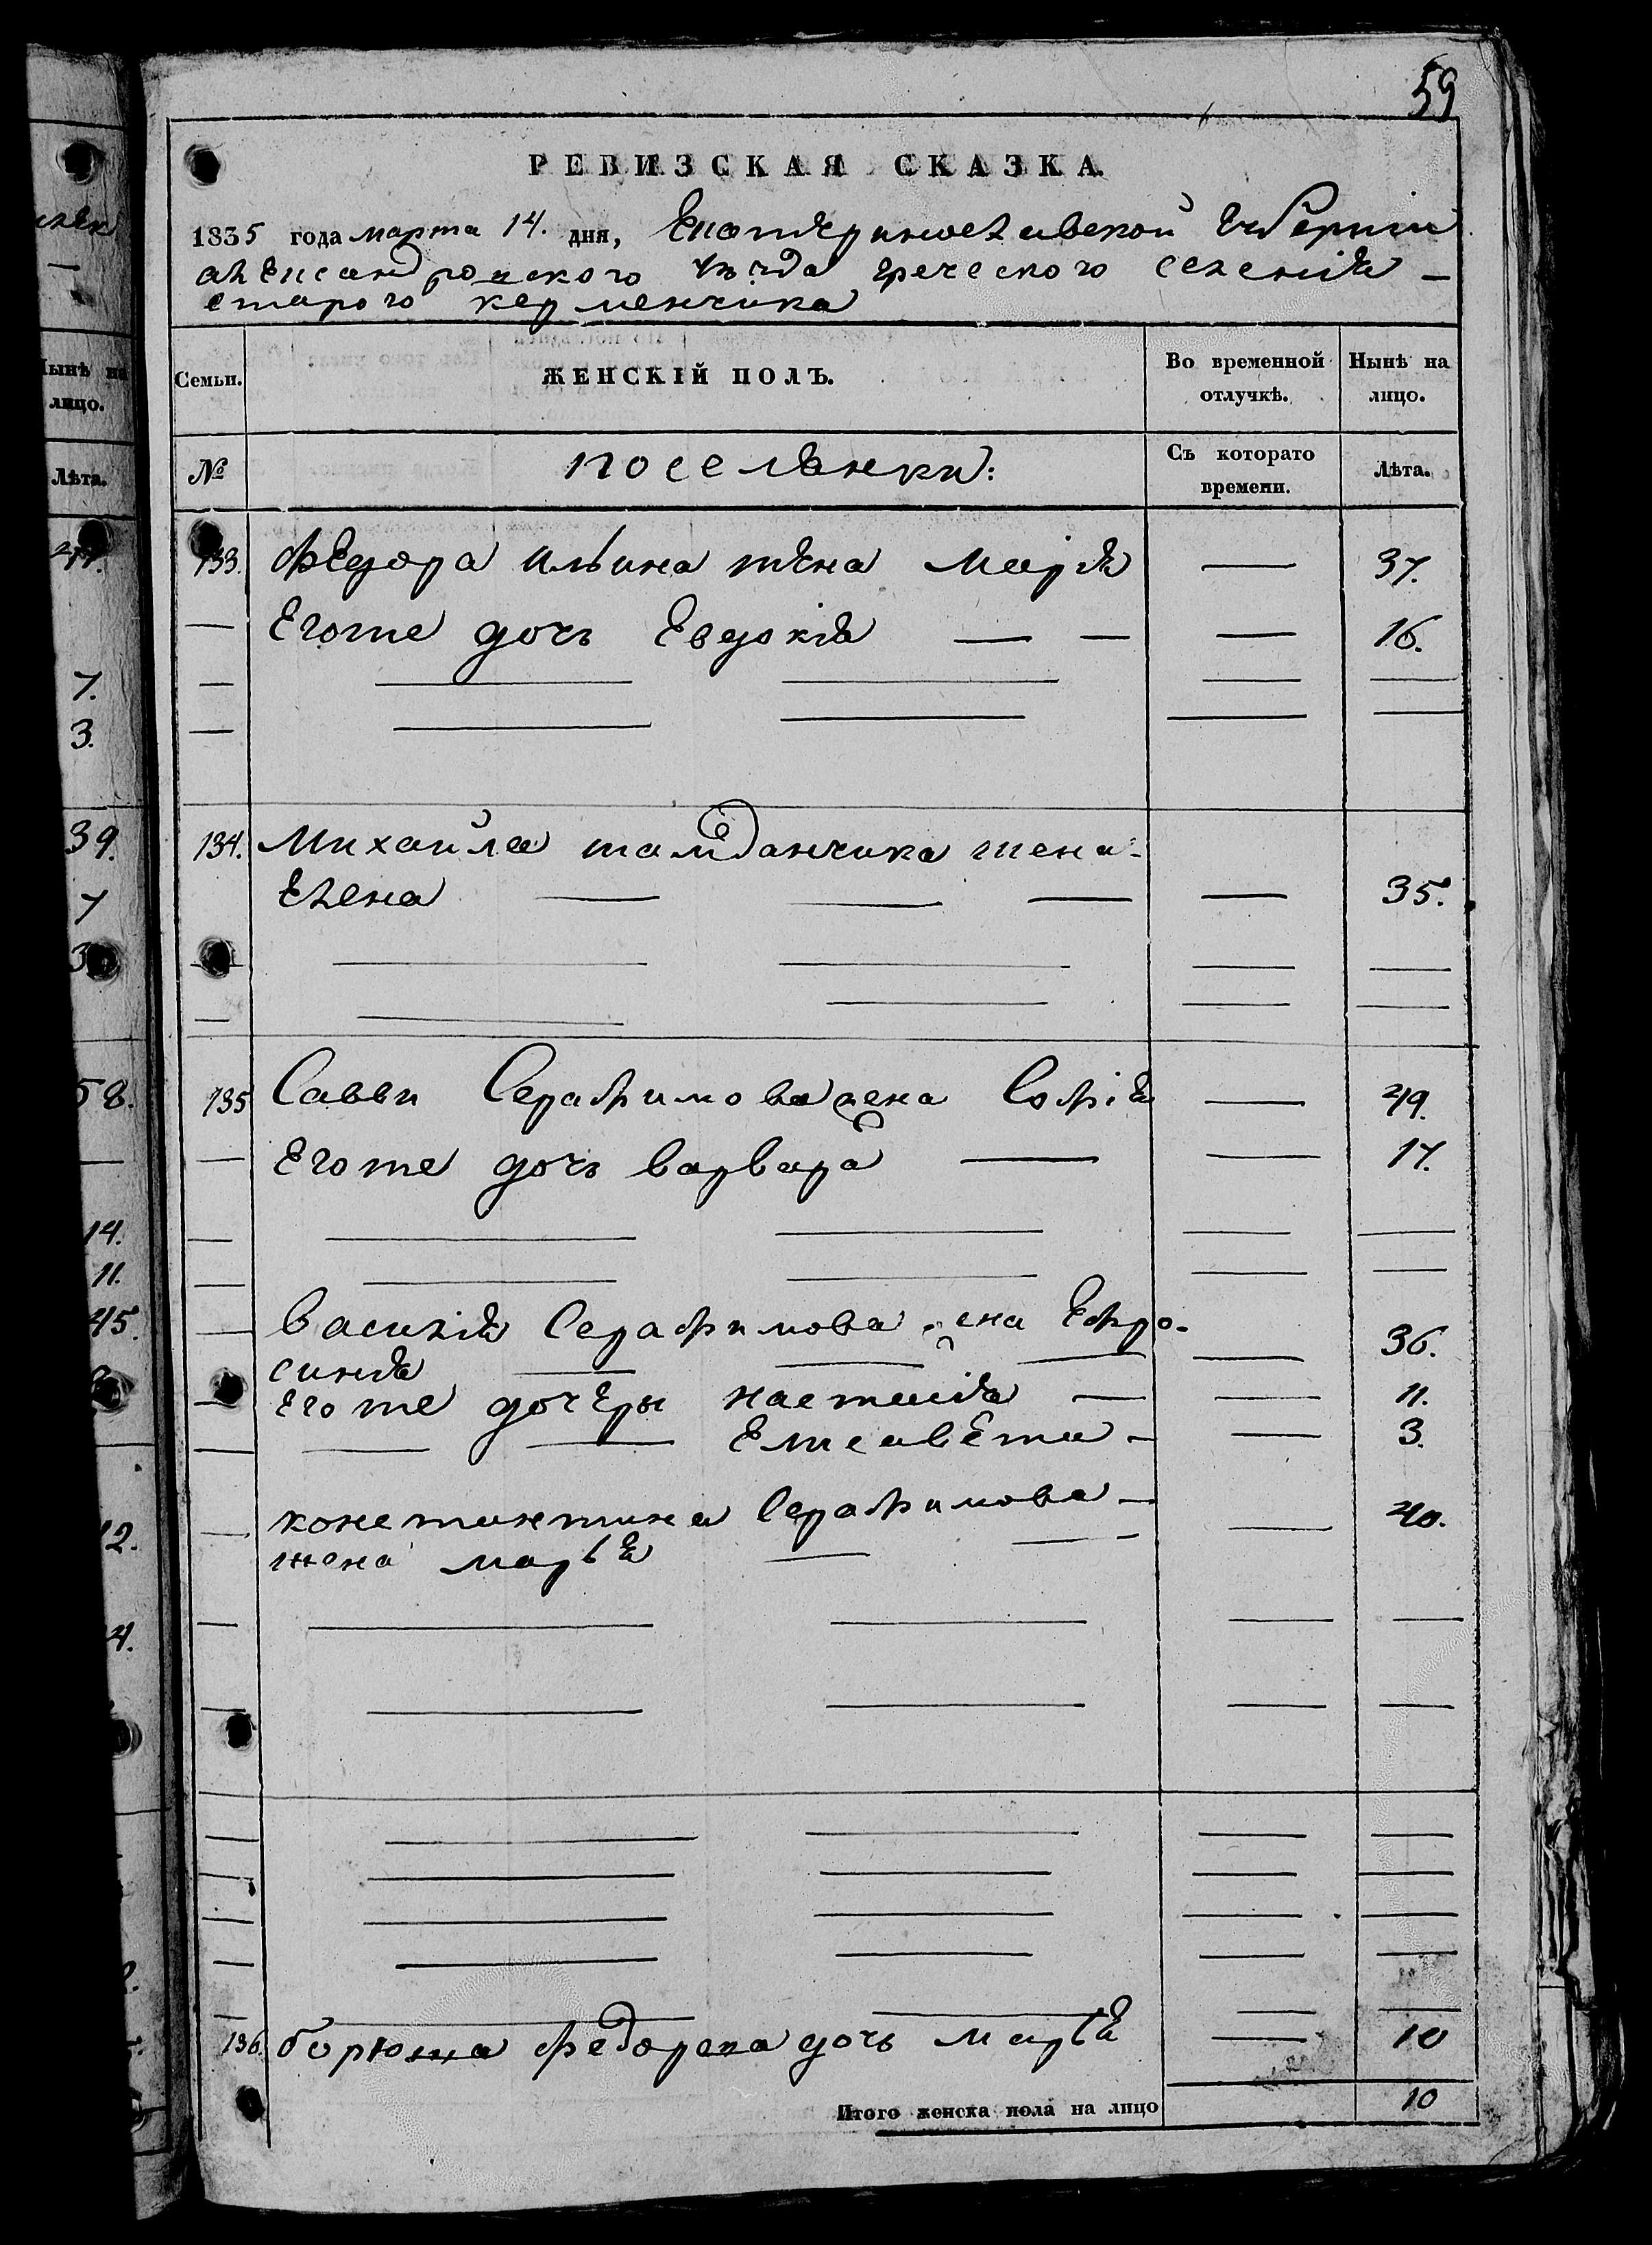 59
РЕВИЗСКАЯ СКАЗКА.
1835 года марта 14. дня, Екатеринославской Губернiи
александровского уезда греческого селенiя —
старого керменчика
Семьи. ЖЕНСКIЙ ПОЛЪ. Во временной отлучкѣ. Нынѣ на лицо.
№ поселянки: Съ которато времени. Лѣта.
133. Федора ильина жена марiя — 37.
— Егоже дочь Евдокiя — — — 16.
134. Михайла тамданчика жена-
Елена — — — — 35.
135 Саввы Серафимова жена Софiя — 49.
— Егоже дочь варвара — — 17.
— василiя Серафимова жена Ефро- — 36.
синiя — — —
— Егоже дочеры настасiя — — 11.
— — — Елисавета — — 3.
— константина Серафимова — — 40.
жена марья — —
136. Федорека дочь марья — 10
Итого женска пола на лицо 10
Нынѣ на
лицо.
Лѣта.
7.
3.
39.
7
58.
14.
11.
45.
12.
4.